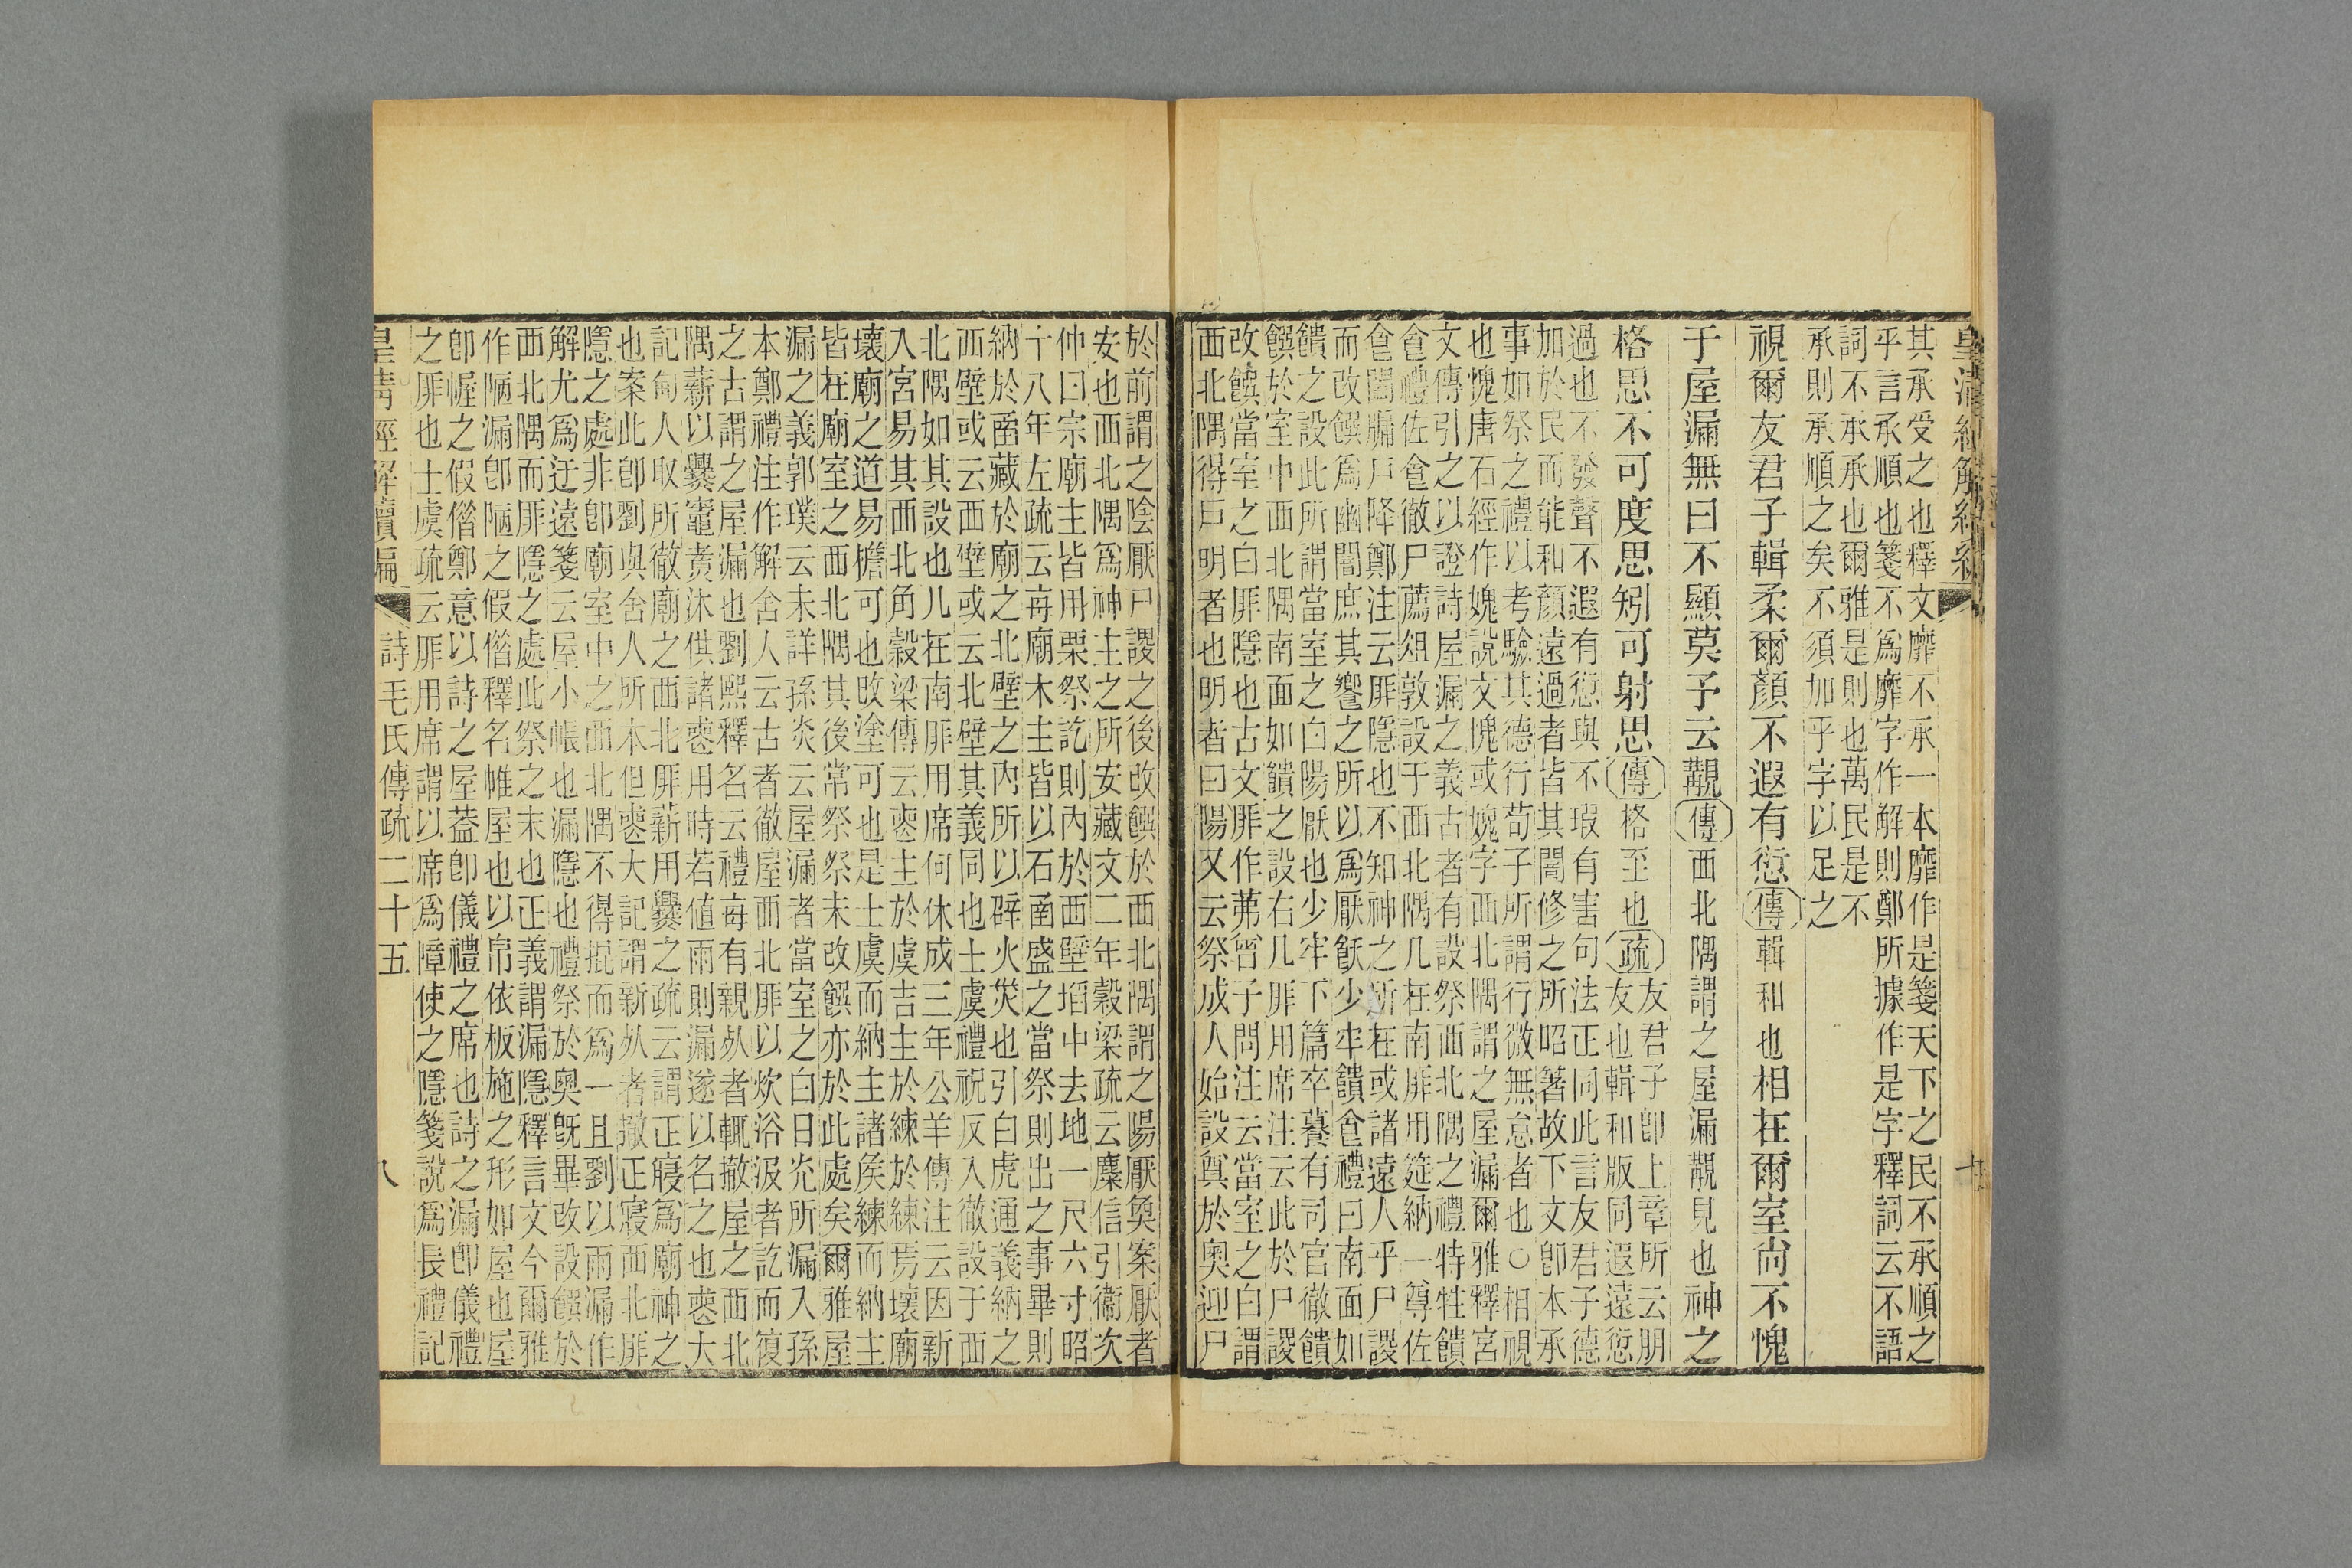 其承受之也釋文靡不承一本靡作是箋天下之民不承順之
乎言承順也箋不爲靡字作解則鄭所據作是字釋詞云不語
詞不承承也爾雅是則也萬民是不
承則承順之矣不須加乎字以足之
視爾友君子輯柔爾顏不遐有愆傳輯和也相在爾室尚不愧
于屋漏無曰不顯莫予云覯傳西北隅謂之屋漏覯見也神之
格思不可度思矧可射思傳格至也疏友君子卽上章所云朋
友也輯和版同遐遠愆
過也不發聲不遐有愆與不瑕有害句法正同此言友君子德
加於民而能和顏遠過者皆其闇修之所昭箸故下文卽本承
事如祭之禮以考驗其德行荀子所謂行微無怠者也○相視
也愧唐石經作媿說文愧或媿字西北隅謂之屋漏爾雅釋宮
文傳引之以證詩屋漏之義古者有設祭西北隅之禮特牲饋
食禮佐食徹尸薦俎敦設于西北隅几在南厞用筵納一尊佐
食闔牖戶降鄭注云厞隱也不知神之所在或諸遠人乎尸謖
而改饌爲幽闇庶其饗之所以爲厭飫少牢饋食禮曰南面如
饋之設此所謂當室之白陽厭也少牢下篇卒餕有司官徹饋
饌於室中西北隅南面如饋之設右几厞用席注云此於尸謖
改饌當室之白厞隱也古文厞作茀曾子問注云當室之白謂
西北隅得戶明者也明者曰陽又云祭成人始設奠於奧迎尸
於前謂之陰厭尸謖之後改饌於西北隅謂之陽厭奠案厭者
安也西北隅爲神主之所安藏文二年穀梁疏云麋信引衞次
仲曰宗廟主皆用栗祭訖則內於西壁埳中去地一尺六寸昭
十八年左疏云每廟木主皆以石函盛之當祭則出之事畢則
納於函藏於廟之北壁之內所以辟火災也引白虎通義納之
西壁或云西壁或云北壁其義同也士虞禮祝反入徹設于西
北隅如其設也几在南厞用席何休成三年公羊傳注云因新
入宮易其西北角穀梁傳云喪主於虞吉主於練焉壞廟
壞廟之道易檐可也改塗可也是士虞而納主諸侯練而納主
皆在廟室之西北隅其後常祭祭末改饌亦於此處矣爾雅屋
漏之義郭璞云未詳孫炎云屋漏者當室之白日光所漏入孫
本鄭禮注作解舍人云古者徹屋西北厞以炊浴汲者訖而復
之古謂之屋漏也劉熙釋名云禮每有親死者輒撤屋之西北
隅薪以爨竈煑沐供諸喪用時若値雨則漏遂以名之也喪大
記甸人取所徹廟之西北厞薪用爨之疏云謂正寢爲廟神之
也案此卽劉與舍人所本但喪大記謂新死者撤正寢西北厞
隱之處非卽廟室中之西北隅不得掍而爲一且劉以雨漏作
解尤爲迂遠箋云屋小帳也漏隱也禮祭於奧旣畢改設饌於
西北隅而厞隱之處此祭之末也正義謂漏隱釋言文今爾雅
作陋漏卽陋之假偕釋名帷屋也以帛依板施之形如屋也屋
卽幄之假偕鄭意以詩之屋葢卽儀禮之席也詩之漏卽儀禮
之厞也士虞疏云厞用席謂以席爲障使之隱箋說爲長禮記
皇清經解續編 詩毛氏傳疏二十五 八